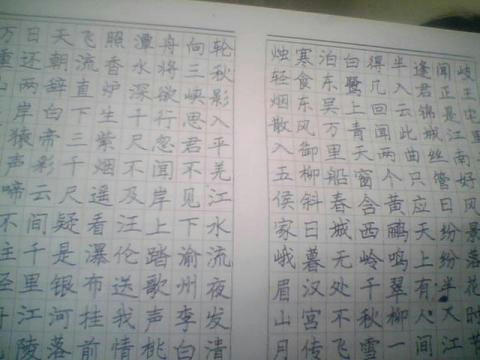 岐王宅里
闻正是江南好风景落花时
逢君锦城丝管日纷纷半入江
入云此曲只应天上有人间
得几回闻两个黄鹂鸣翠柳一
白鹭上青天窗含西岭千秋雪
泊东吴万里船春城无处不飞
寒食东风御柳斜日暮汉宫传
烛轻烟散入五侯家峨眉山月
轮秋影入平羌江水流夜发清
向三峡思君不见下渝州李白
舟将欲行忽闻岸上踏歌声桃
潭水深千尺不及汪伦送我情
照香炉生紫烟遥看瀑布挂前
飞流直下三千尺疑是银河落
天朝辞白帝彩云间千里江陵
日还两岸猿声啼不
万重